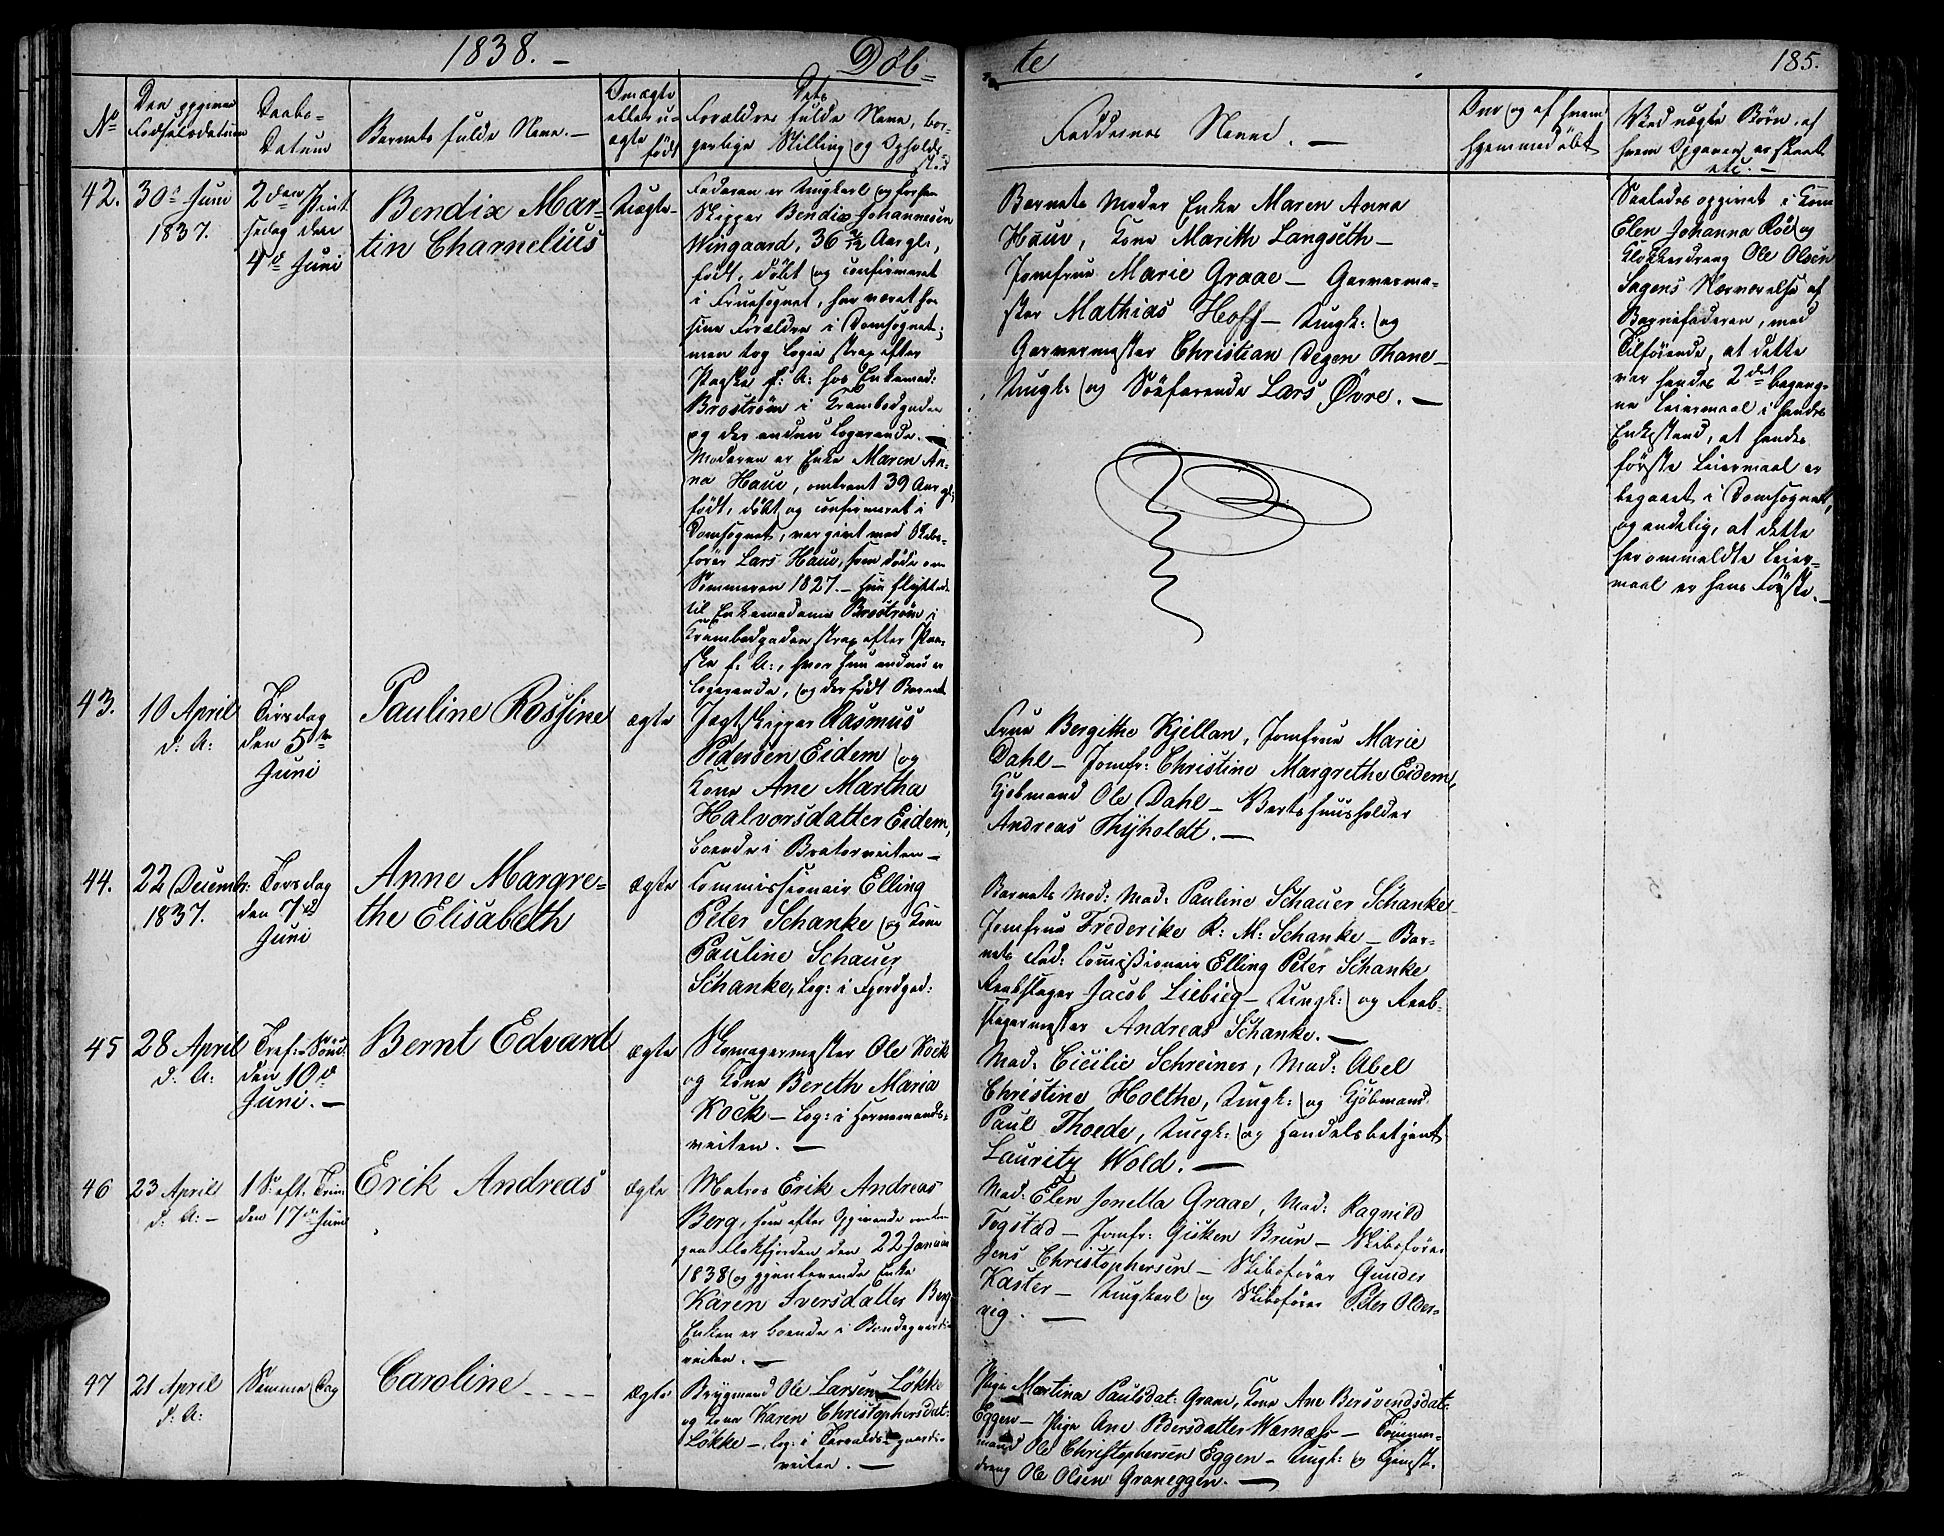 1838. – Døb= te 185.
No
Den opgivne
Fødselsdatum
Daabs-
Datum
Barnets fulde Navn. –
Om ægte
eller u-
ægte
født
Dets
Forældres fulde Navn, bor-
gerlige Stilling og Opholds-
sted
Faddernes Navne. –
Om og af hvem
hjemmedøbt
Ved uægte Børn, af
hvem Opgaven er skeet
etc. –
42.
30te Juni
1837.
2den Pint
sedag den
4de Juni
Bendix Mar-
tin Charnelius
Uægte
Faderen er Ungkarl og forhen
Skipper Bendix Johannesen
Wingaard, 36 Aar gl.,
født, døbt og confirmeret
i Fruesognet, har været hos
sine Forældre i Domsognet;
men tog Logie strax efter
Paaske f: A: hos Enkemad:
Broström i Krambodgaden
og der endnu logerende. –
Moderen er Enke Maren An-
na Haue, omtrent 39 Aar gl;
født, døbt og confirmeret i
Domsognet, var givt med Skibs-
fører Lars Haue, som døde om
Sommeren 1827. – hun flyttede
til Enkemadame Broström i
Krambodgaden strax efter Paa-
ske f: A:, hvor hun endnu er
logerende, og der født Barnet
Barnets Moder Enke Maren Anna
Haue, Kone Marith Langseth –
Jomfrue Marie Graae – Garverme-
ster Mathias Hoff – Ungk: og
Garvermester Christian Degen Thane –
Ungk: og Søefarende Lars Øvre. –
Saaledes opgivet i Kone
Elen Johanna Röe og
Klokkerdreng Ole Olsen
Sagens Nærværelse af
Barnefaderen, med
Tilføiende, at dette
var hendes 2det begang-
ne Leiermaal i hendes
Enkestand, at hendes
første Leiermaal er
begaaet i Domsognet,
og endelig, at dette
her ommeldte Leier-
maal er hans Første. –
43.
10 April
d: A:
Tirsdag
den 5te
Juni
Pauline Rossine
ægte
Jagtskipper Rasmus
Pedersen Eidem og
Kone Ane Martha
Halvorsdatter Eidem,
boende i Bratørveiten –
Frue Bergithe Kjellan, Jomfrue Marie
Dahl – Jomfr: Christine Margrethe Eidem,
Kjøbmand Ole Dahl – Vertshuusholder
Andreas Thyholdt. –
44.
22 Decembr:
1837.
Torsdag
den 7de
Juni
Anne Margre-
the Elisabeth
ægte
Commissionair Elling
Peter Schanke og Kone
Pauline Schauer
Schanke, Log: i Fjordgad:
Barnets Mod: Mad: Pauline Schauer Schanke –
Jomfrue Frederike R: M: Schanke – Bar-
nets Fad: Comissionair Elling Peter Schanke
Reebslager Jacob Liebieg – Ungk: og Reeb-
slagermester Andreas Schanke. –
45
28 April
d: A:
Tref: Sønd.
den 10de
Juni. –
Bernt Edvard
ægte
Skomagermester Ole Kock
og Kone Bereth Maria
Kock – Log: i Hornemands-
veiten. –
Mad: Cicilie Schreiner, Mad: Abel
Christine Holthe, Ungk: og Kjøbmand.
Paul Thoede, Ungk: og Handelsbetjent
Lauritz Wold. –
46
23 April
d: A: –
1 S: eft: Trin:
den 17de Juni
Erik Andreas
ægte
Matros Erik Andreas
Berg, som efter Opgivende omkom
paa Flakfjorden den 22 Januar
1838 og gjenlevende Enke
Karen Iversdatter Berg
Enken er boende i Bondegaards-
veiten. –
Mad: Elen Jonella Graae, Mad: Ragnild
Togstad – Jomfr: Gisken Brun – Skibsfører
Jens Christophersen – Skibsfører Gunder
Kaster – Ungkarl og Skibsfører Peter Older-
vig. –
47
21 April
d: A:
Samme Dag
Caroline ----
ægte
Brygmand Ole Larsen Løkke
og Kone Karen Christophersdat:
Løkke – Log: i gaards-
veiten. –
Pige Martina Paulsdat: Graae, Kone Ane Bersvendsdat:
Eggen – Pige Ane Pedersdatter Wærnæs – Tømmer-
mand Ole Christophersen Eggen – Ungk: og Tjenest-
dreng Ole Olsen Graneggen. –